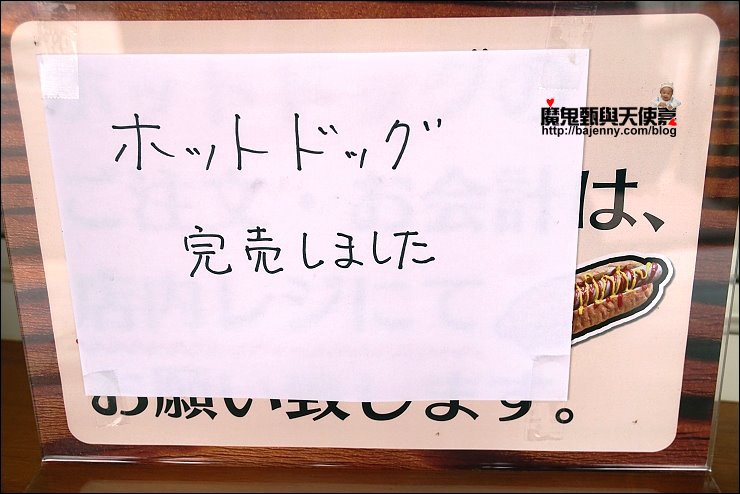 魔鬼甄與天使嘉
http://bajenny.com/blog
ホットドッグ
完売しました
ご注文・お会計は、
お願い致します。